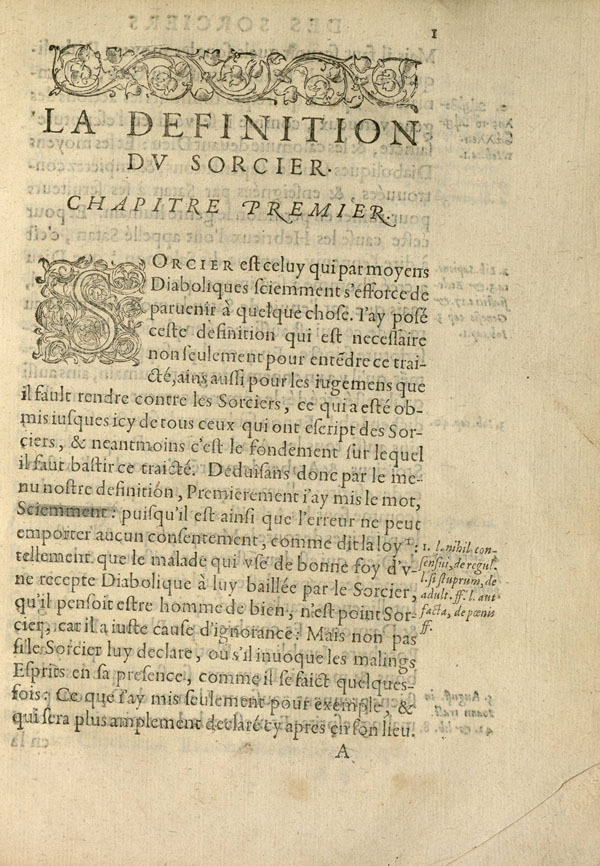 1
LA DEFINITION
DV SORCIER.
CHAPITRE PREMIER.
SORCIER est celuy qui par moyens
Diaboliques sciemment s'efforce de
paruenir à quelque chose. I'ay posé
ceste definition qui est necessaire
non seulement pour entẽdre ce trai-
cté, ains aussi pour les iugemens que
il fault rendre contre les Sorciers, ce qui a esté ob-
mis iusques icy de tous ceux qui ont escript des Sor-
ciers, & neantmoins c'est le fondement sur lequel
il faut bastir ce traicté. Deduisans donc par le me-
nu nostre definition, Premierement i'ay mis le mot,
Sciemment: puisqu'il est ainsi que l'erreur ne peut
emporter aucun consentement, comme dit la loy 1:
tellement que le malade qui vse de bonne foy d'v-
ne recepte Diabolique à luy baillée par le Sorcier,
qu'il pensoit estre homme de bien, n'est point Sor-
cier, car il a iuste cause d'ignorance: Mais non pas
si le Sorcier luy declare, ou s'il inuoque les malings
Esprits en sa presence, comme il se faict quelques-
fois: Ce que i'ay mis seulement pour exemple, &
qui sera plus amplement declaré cy apres en son lieu.
1. l. nihil con-
sensui, de regul.
l. si stuprum, de
adult. ff. l. aut
facta, de pœnis
ff.
A